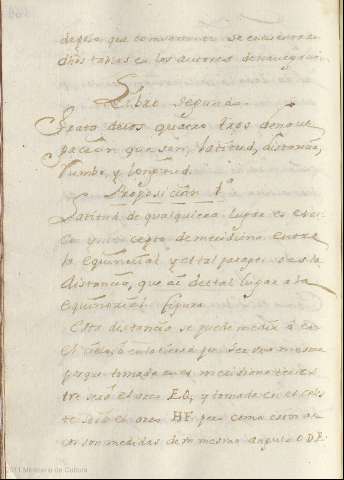 de polo, que comunmente se encuentran
dhos tablas en los autores de navegacion
Libro segundo.
Trata de los quatro ... de nave
gacion que son, latitud, distancia,
Rumbo, y longitud.
Proposicion 1ª
Latitud de qualquiera lugar es el ar
co ... de meridiano entre
la equinocial y el tal parage o es la
distancia, que ai del tal lugar a la
equinocial. figura
Esta distancia se puede medir o en
el cielo, o en la tierra por ser una mesma
porque tomada en el meridiano terres
tre será el arco EO, y tomada en el celes
te será el arco HF pero como estos ar
cos son medidas de un mesmo angulo ODE
2011 Ministerio de Cultura